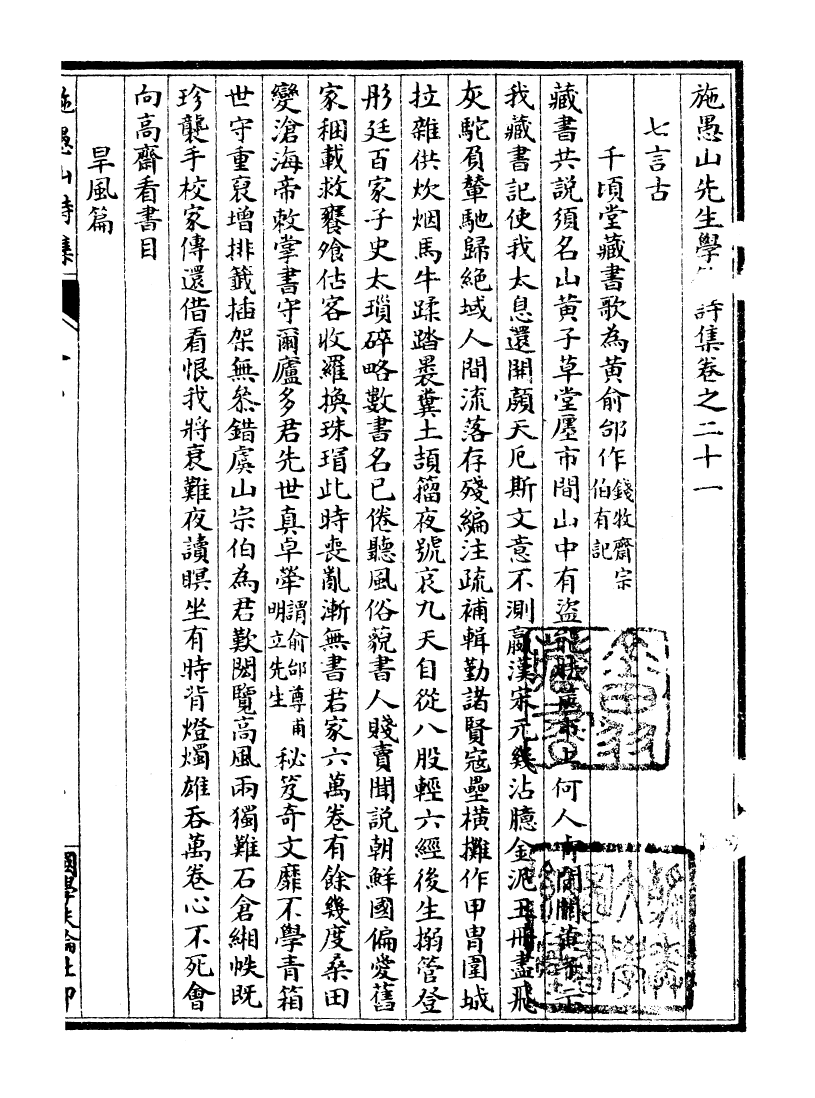 施愚山先生學 詩集卷之二十一
七言古
千頃堂藏書歌為黃俞邰作錢牧齋宗伯有記
藏書共説須名山黃子草堂㕓市間山中有盜 市上何人 閒關黃子
我藏書記使我太息還開顏天厄斯文意不測嬴漢宋元幾沾臆金泥玉冊盡飛
灰駝負輦馳歸絕域人間流落存殘編注疏補輯勤諸賢寇壘橫攤作甲胄圍城
拉雜供炊烟馬牛蹂踏裹糞土頡籀夜號哀九天自從八股輕六經後生搦管登
彤廷百家子史太瑣碎略數書名已倦聽風俗藐書人賤賣聞説朝鮮國偏愛舊
家稛載救饔飱估客收羅換珠瑁此時喪亂漸無書君家六萬卷有餘幾度桑田
變滄海帝敕掌書守爾廬多君先世真卓犖謂俞邰尊甫明立先生秘笈奇文靡不學青箱
世守重裒增排籤插架無叅錯虞山宗伯為君歎閎覽高風兩獨難石倉緗帙既
珍襲手校家傳還借看恨我將衰難夜讀瞑坐有時背燈燭雄吞萬卷心不死會
向高齋看書目
旱風篇
施愚山詩集
國學扶輪社印